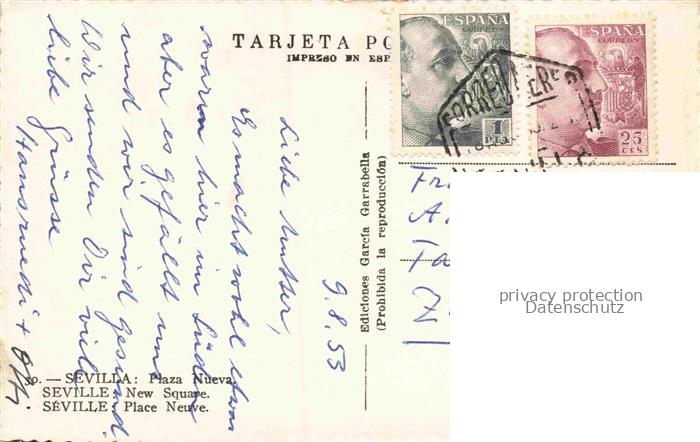 TARJETA PO
IMPRESO EN ESP
ESPAÑA
CORREOS
1
PTA
ESPAÑA
CORREOS
25
CTS
9.8.53
Liebe Mutter,
Es macht wohl etwas
warm hier im Süden
aber es gefällt uns
und wir sind gesund.
Wir senden Dir viele
liebe Grüsse
Hansruedi +
Ediciones García Garrabella
(Prohibida la reproducción)
Fr
A.
Z
privacy protection
Datenschutz
30. — SEVILLA: Plaza Nueva.
SEVILLE: New Square.
SÉVILLE: Place Neuve.